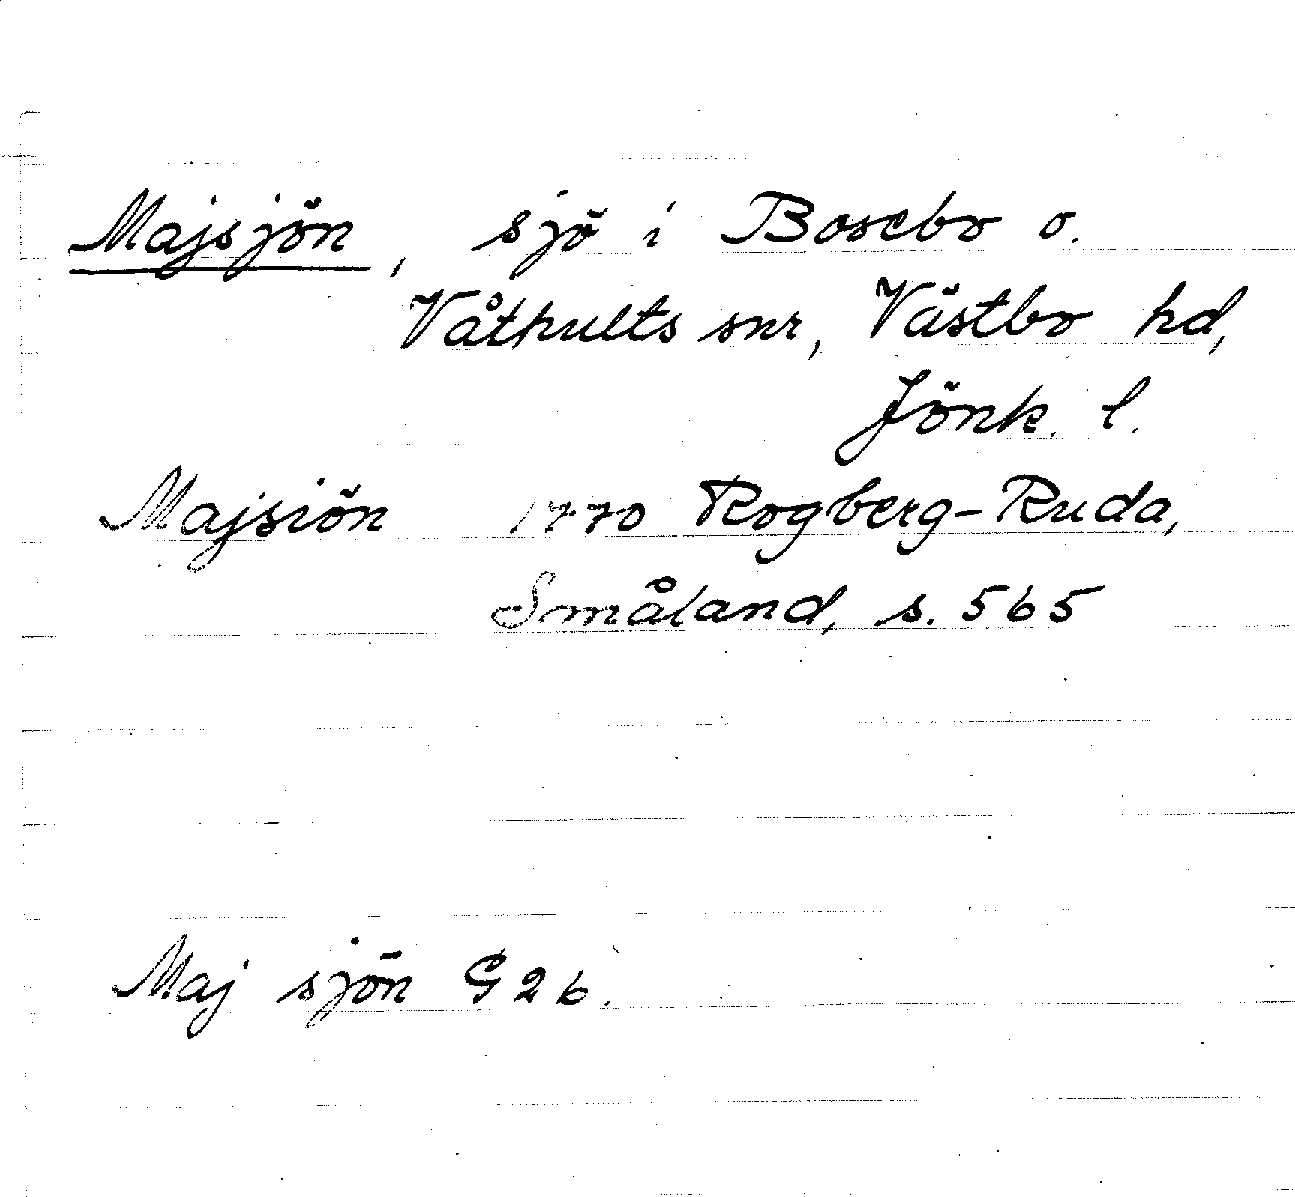 Majsjön, sjö i Bosebo o.
Våthults snr, Västbo hd,
Jönk. l.
Majsiön 1770 Rogberg-Ruda,
Småland, s. 565
Maj sjön G 26.